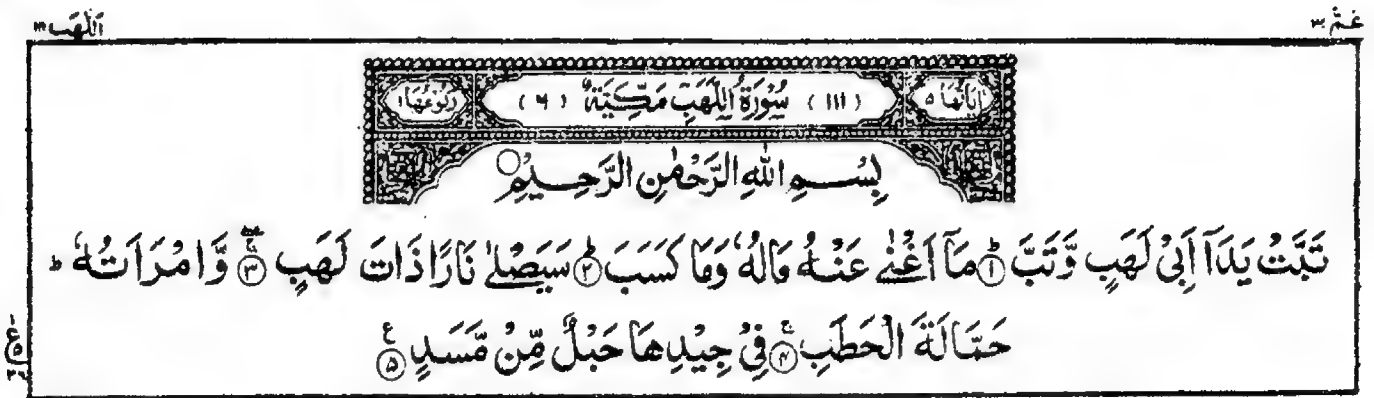 عَمَّ ۳۰
اَللَّهَب ۱۱۱
اٰيَاتُهَا ۵ (۱۱۱) سُوْرَةُ اللَّهَبِ مَكِّيَّةٌ (۶) رُكُوْعُهَا ۱
بِسْمِ اللّٰهِ الرَّحْمٰنِ الرَّحِيْمِ
تَبَّتْ يَدَآ اَبِىْ لَهَبٍ وَّتَبَّ ۱ؕ مَآ اَغْنٰى عَنْهُ مَالُهٗ وَمَا كَسَبَ ۲ؕ سَيَصْلٰى نَارًا ذَاتَ لَهَبٍ ۳ۚ وَّامْرَاَتُهٗ ؕ
حَمَّالَةَ الْحَطَبِ ۴ۚ فِىْ جِيْدِهَا حَبْلٌ مِّنْ مَّسَدٍ ۵